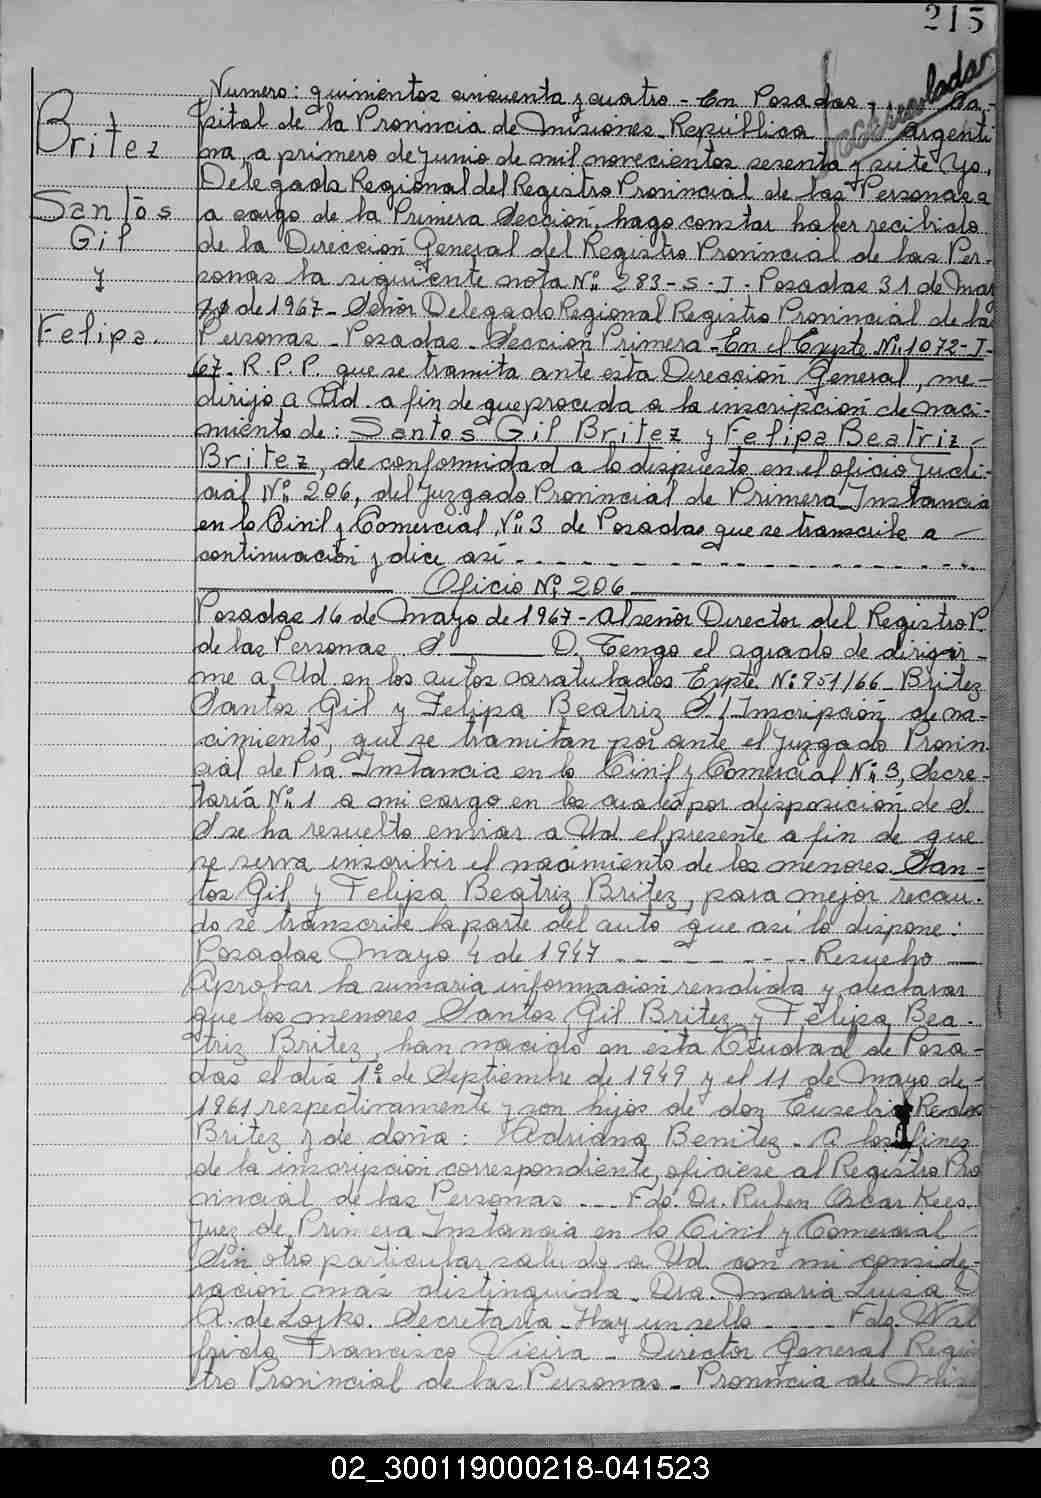 215
Numero: quinientos cincuenta y cuatro - En Posadas, Ca-
pital de la Provincia de Misiones - República Argenti
na, a primero de Junio de mil novecientos sesenta y siete Yo,
Delegado Regional del Registro Provincial de las Personas a
a cargo de la Primera Sección, hago constar haber recibido
de la Dirección General del Registro Provincial de las Per-
sonas la siguiente nota Nº 283-S-J- Posadas 31 de Mar
zo de 1967 - Señor Delegado Regional Registro Provincial de las
Personas - Posadas - Sección Primera - En el Expte Nº 1072-J-
67- R.P.P. que se tramita ante esta Dirección General, me-
dirijo a Ud. a fin de que proceda a la inscripción de naci-
miento de: Santos Gil Britez y Felipa Beatriz -
Britez, de conformidad a lo dispuesto en el oficio Judi-
cial Nº 206, del Juzgado Provincial de Primera Instancia
en lo Civil y Comercial, Nº 3 de Posadas que se transcribe a -
continuación y dice así - - - - - - - - - - - - - - - - -
Britez
Santos
Gil
y
Felipa.
Oficio Nº 206
Posadas 16 de Mayo de 1967 - Al señor Director del Registro P.
de las Personas. S. ______ D. Tengo el agrado de dirigir-
me a Ud. en los autos caratulados Expte. Nº 951/66 - Britez
Santos Gil y Felipa Beatriz S./Inscripción de na-
cimiento, que se tramitan por ante el Juzgado Provin-
cial de Pra. Instancia en lo Civil y Comercial Nº 3, Secre-
taría Nº 1 a mi cargo en los cuales por disposición de S.
S se ha resuelto enviar a Ud. el presente a fin de que
se sirva inscribir el nacimiento de los menores San-
tos Gil y Felipa Beatriz Britez, para mejor recau-
do se transcribe la parte del auto que así lo dispone:
Posadas Mayo 4 de 1947 - - - - - - - - Resuelvo —
Aprobar la sumaria información rendida y declarar
que los menores Santos Gil Britez y Felipa Bea-
triz Britez, han nacido en esta Ciudad de Posa-
das el día 1º de Septiembre de 1949 y el 11 de Mayo de -
1961 respectivamente y son hijos de don Eusebio
Britez y de doña: Adriana Benitez - A los fines
de la inscripción correspondiente, ofíciese al Registro Pro
vincial de las Personas - - - Fdo. Dr. Ruben Oscar Kees.
Juez de Primera Instancia en lo Civil y Comercial -
Sin otro particular saludo a Ud. con mi conside-
ración más distinguida. Dra. Maria Luisa
A. de Lojko. Secretaria - Hay un sello - - - - Fdo. Wal
frido Francisco Vieira - Director General Regis
tro Provincial de las Personas - Provincia de Misi
02_300119000218-041523